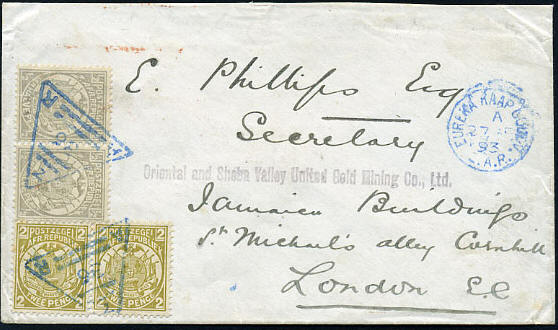 E. Phillips Esq
Secretary
Oriental and Sheba Valley United Gold Mining Co., Ltd.
Jamaica Buildings
St Michael's alley Cornhill
London E.C
EUREKA KAAP
A
27
93
Z.A.R.
POSTZEGEL
Z.AFR.REPUBLIEK
2 TWEE PENCE 2
POSTZEGEL
Z.AFR.REPUBLIEK
2 TWEE PENCE 2